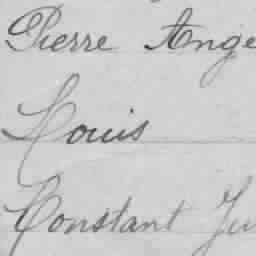 Pierre Ange
Louis
Constant Ju